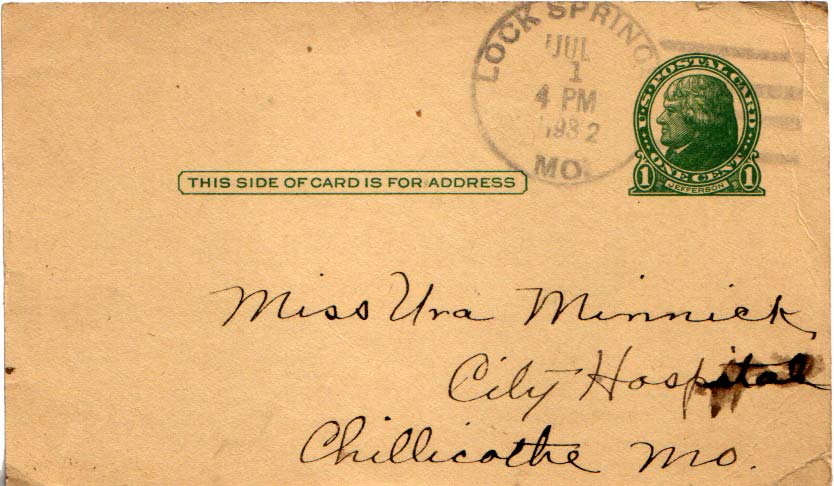 LOCK SPRING
JUL
1
4 PM
1932
MO.
U.S. POSTAL CARD
ONE CENT
1 JEFFERSON 1
THIS SIDE OF CARD IS FOR ADDRESS
Miss Ura Minnick
City Hospital
Chillicothe Mo.